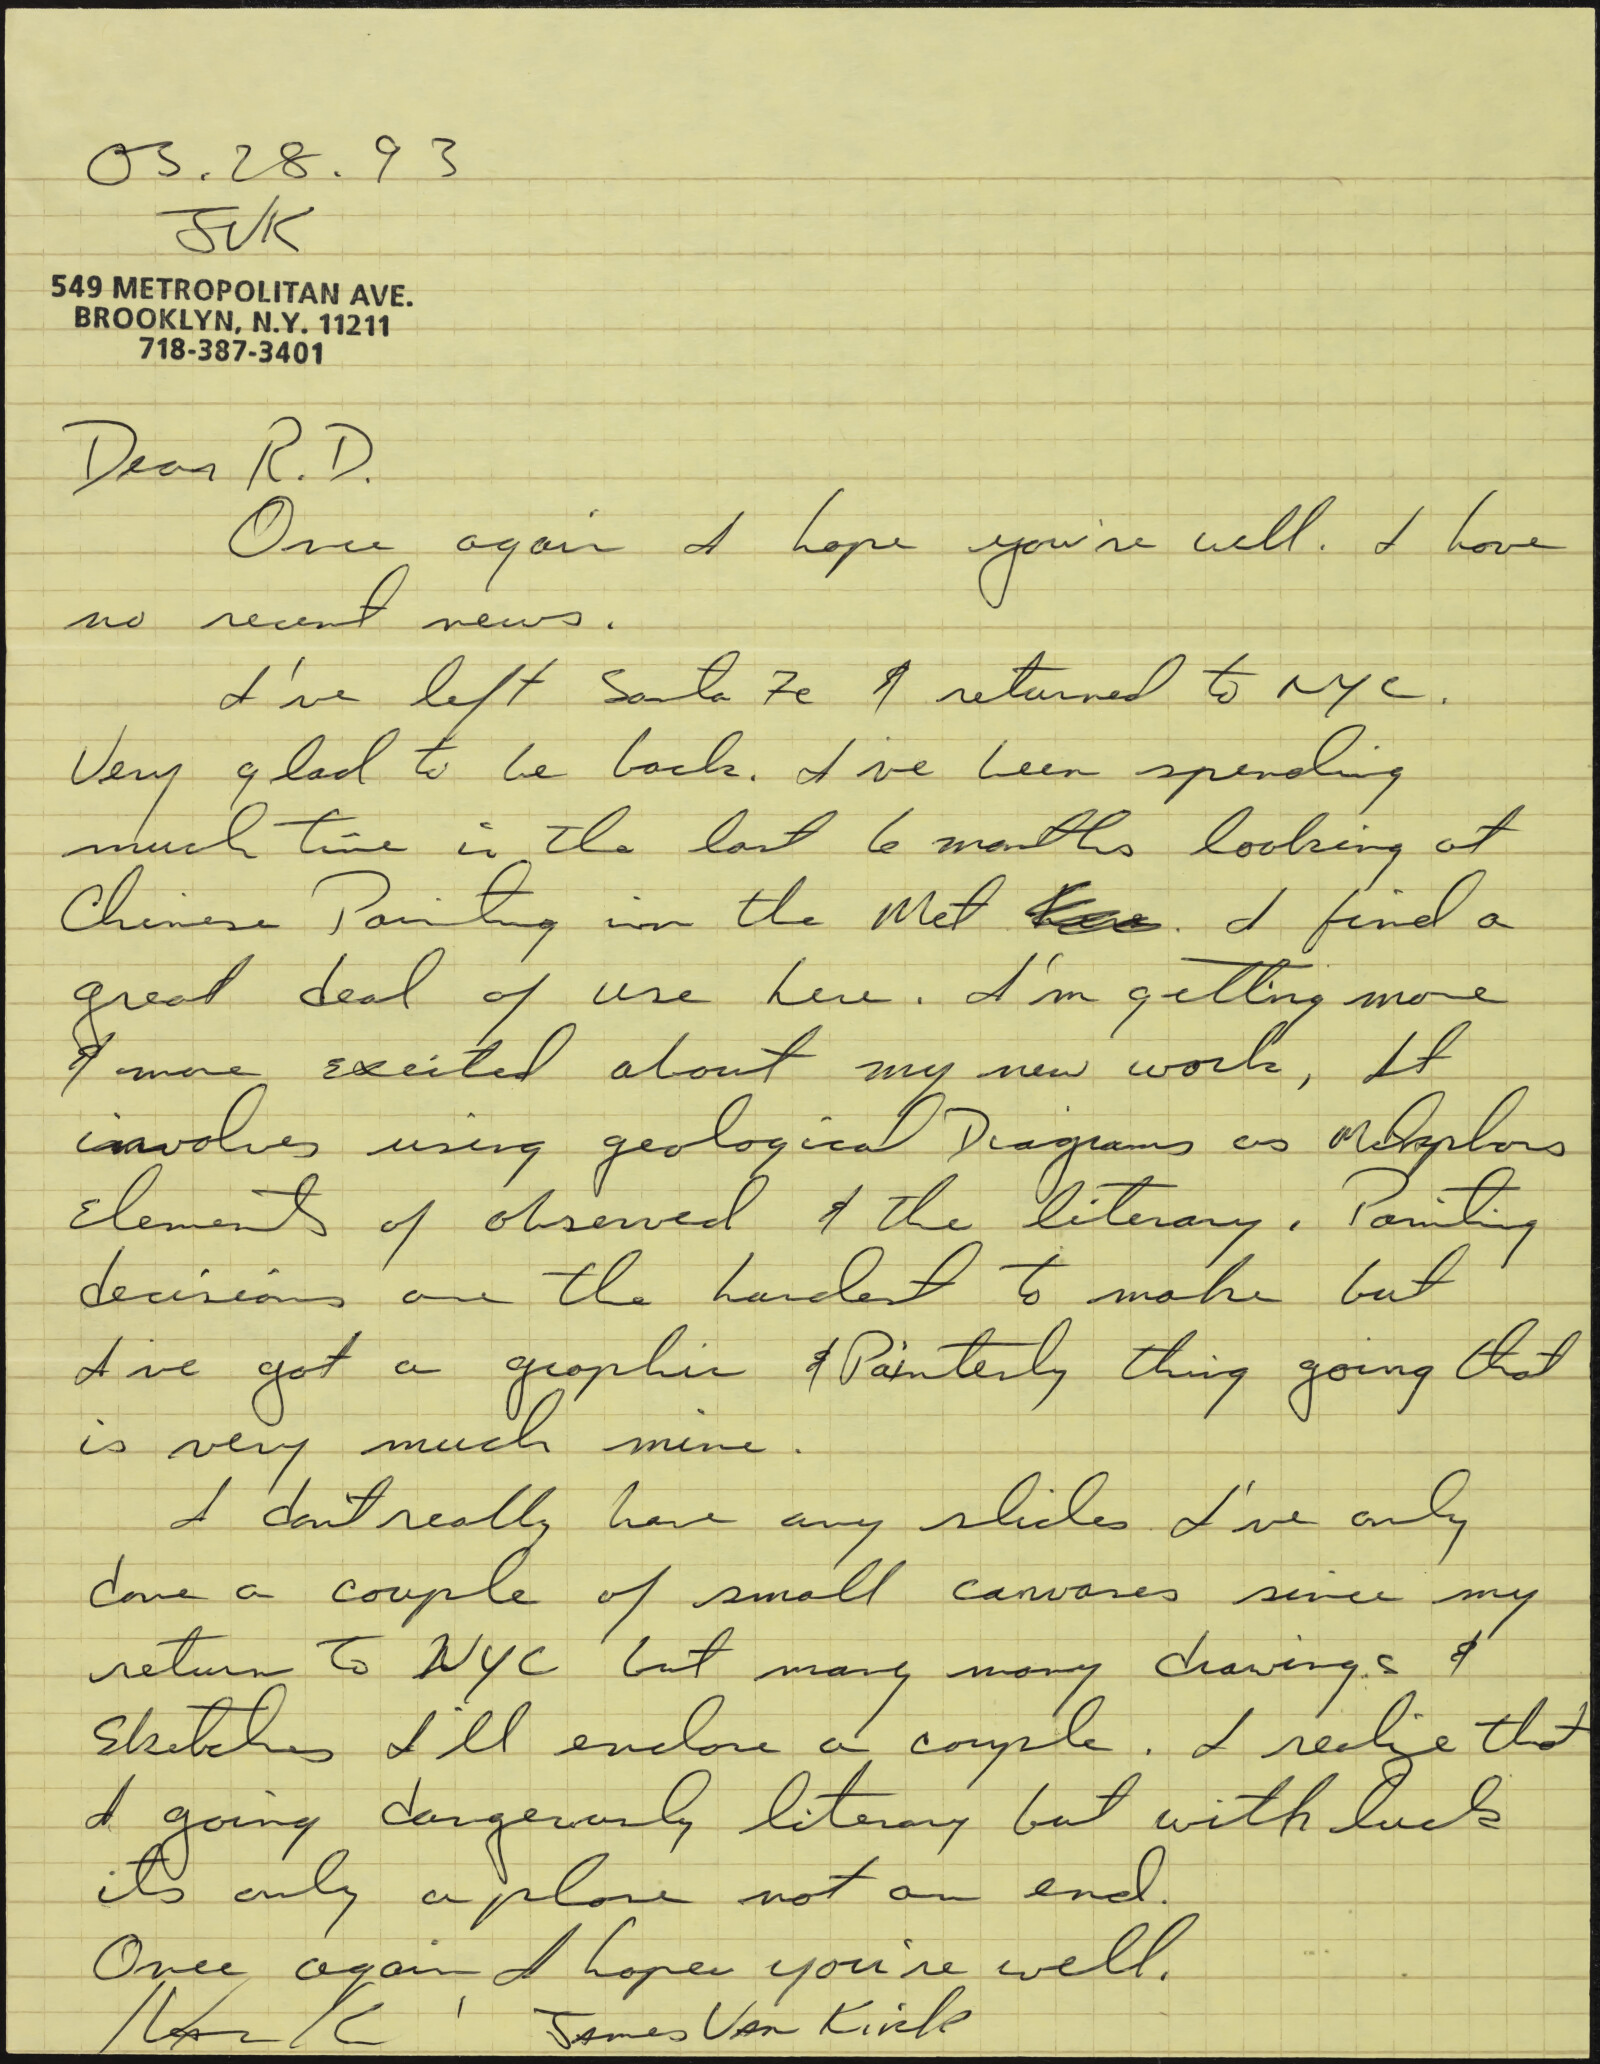 03.28.93
JVK
549 METROPOLITAN AVE.
BROOKLYN, N.Y. 11211
718-387-3401
Dear R.D.
Once again I hope you're well. I have
no recent news.
I've left Santa Fe & returned to NYC.
Very glad to be back. I've been spending
much time in the last 6 months looking at
Chinese Painting in the Met. I find a
great deal of use here. I'm getting more
& more excited about my new work, It
involves using geological Diagrams as Metaphors
Elements of observed & the literary. Painting
decisions are the hardest to make but
I've got a graphic & Painterly thing going that
is very much mine.
I don't really have any slides I've only
done a couple of small canvases since my
return to NYC but many many drawings &
Sketches I'll enclose a couple. I realize that
I going dangerously literary but with luck
its only a phase not an end.
Once again I hope you're well.
James Van Kirk